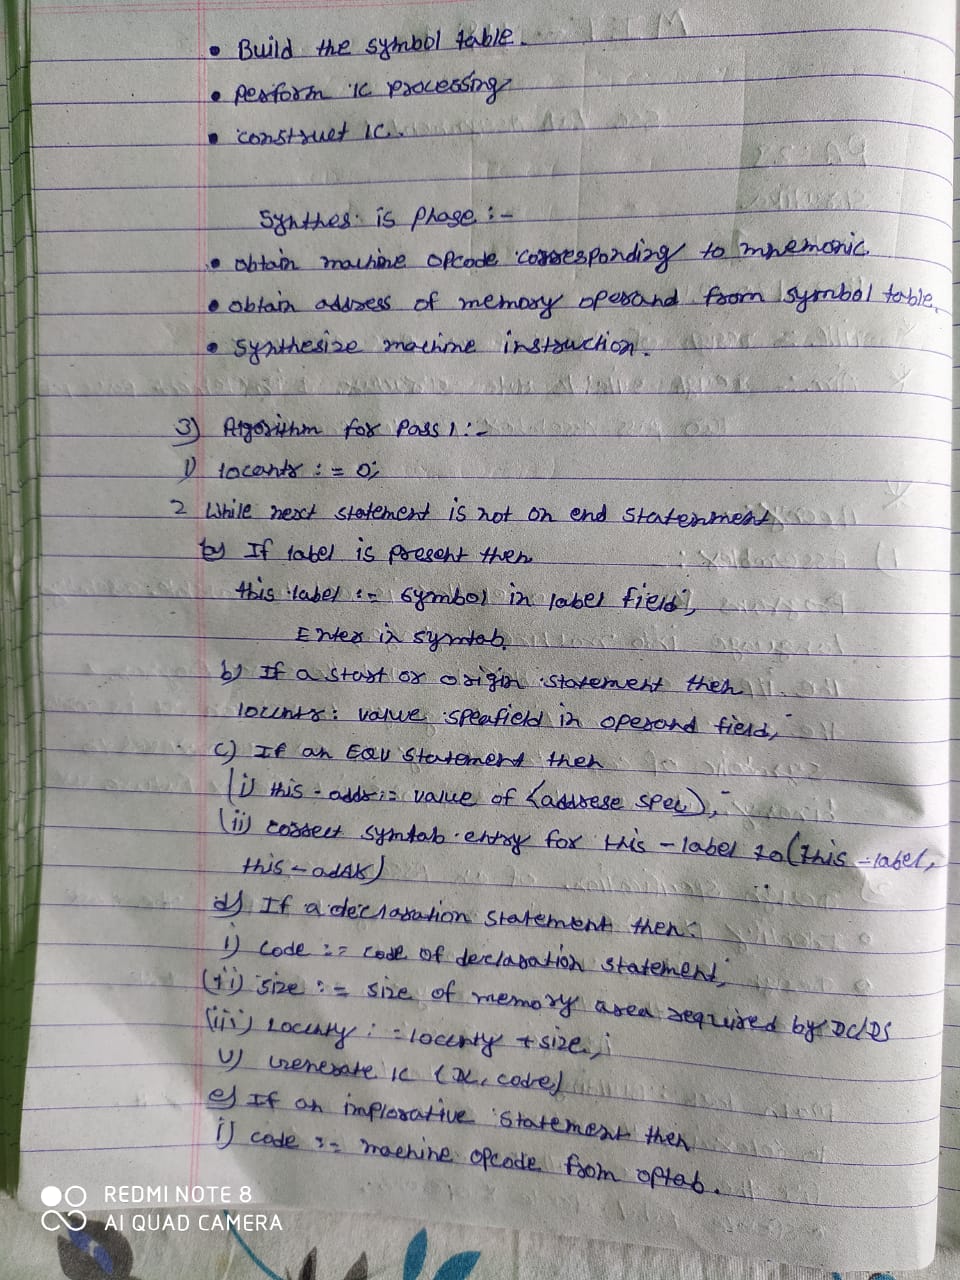 • Build the symbol table.
• perform IC processing
• construct IC.
Synthes is Phase :-
• obtain machine opcode corresponding to mnemonic.
• obtain address of memory operand from symbol table.
• synthesize machine instruction.
3) Algorithm for Pass 1 :-
1) locantr : = 0;
2 While next statement is not on end statement
b) If label is present then
this label := symbol in label field;
Enter in symtab.
b) If a start or origin statement then
locuntr : value speafield in operand field;
c) If an EQU statement then
(i) this - addr := value of <addrese spec>;
(ii) correct symtab entry for this - label to (this - label,
this - addk)
d) If a declaration statement then:
i) code := code of declaration statement;
(ii) size := size of memory area required by DC/DS
(iii) locunty : = locunty + size;
v) Generate IC (DL, code)
e) If an implorative statement then
i) code := machine opcode from optab.
REDMI NOTE 8
AI QUAD CAMERA